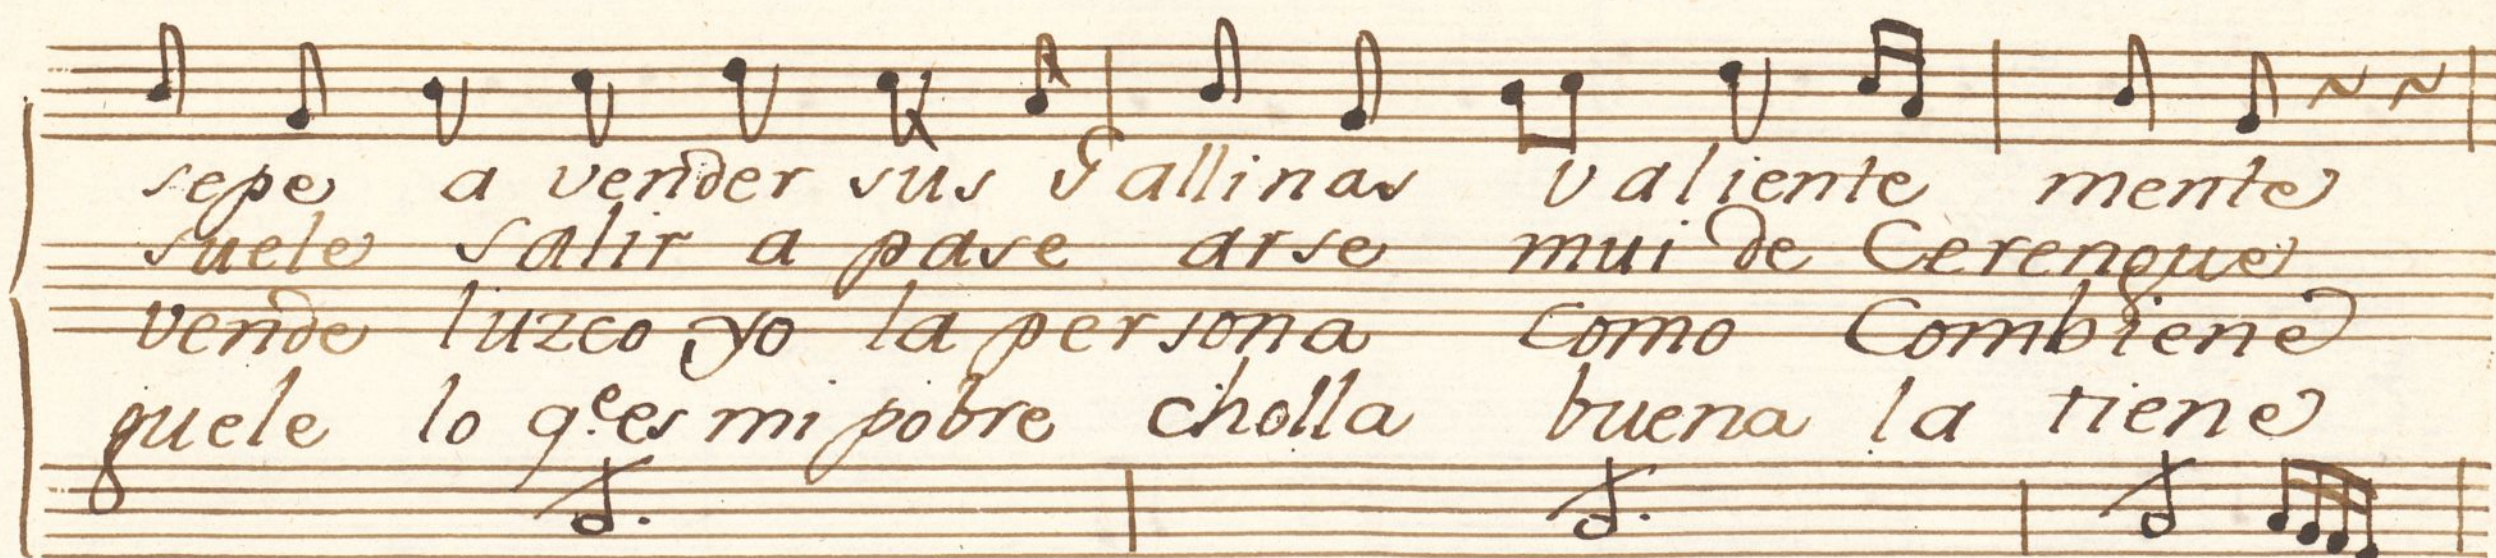 sepe a vender sus Gallinas valiente mente
suele salir a pase arse mui de Cerengue
vende luzco yo la persona como Combiene
guele lo q.e es mi pobre cholla buena la tiene